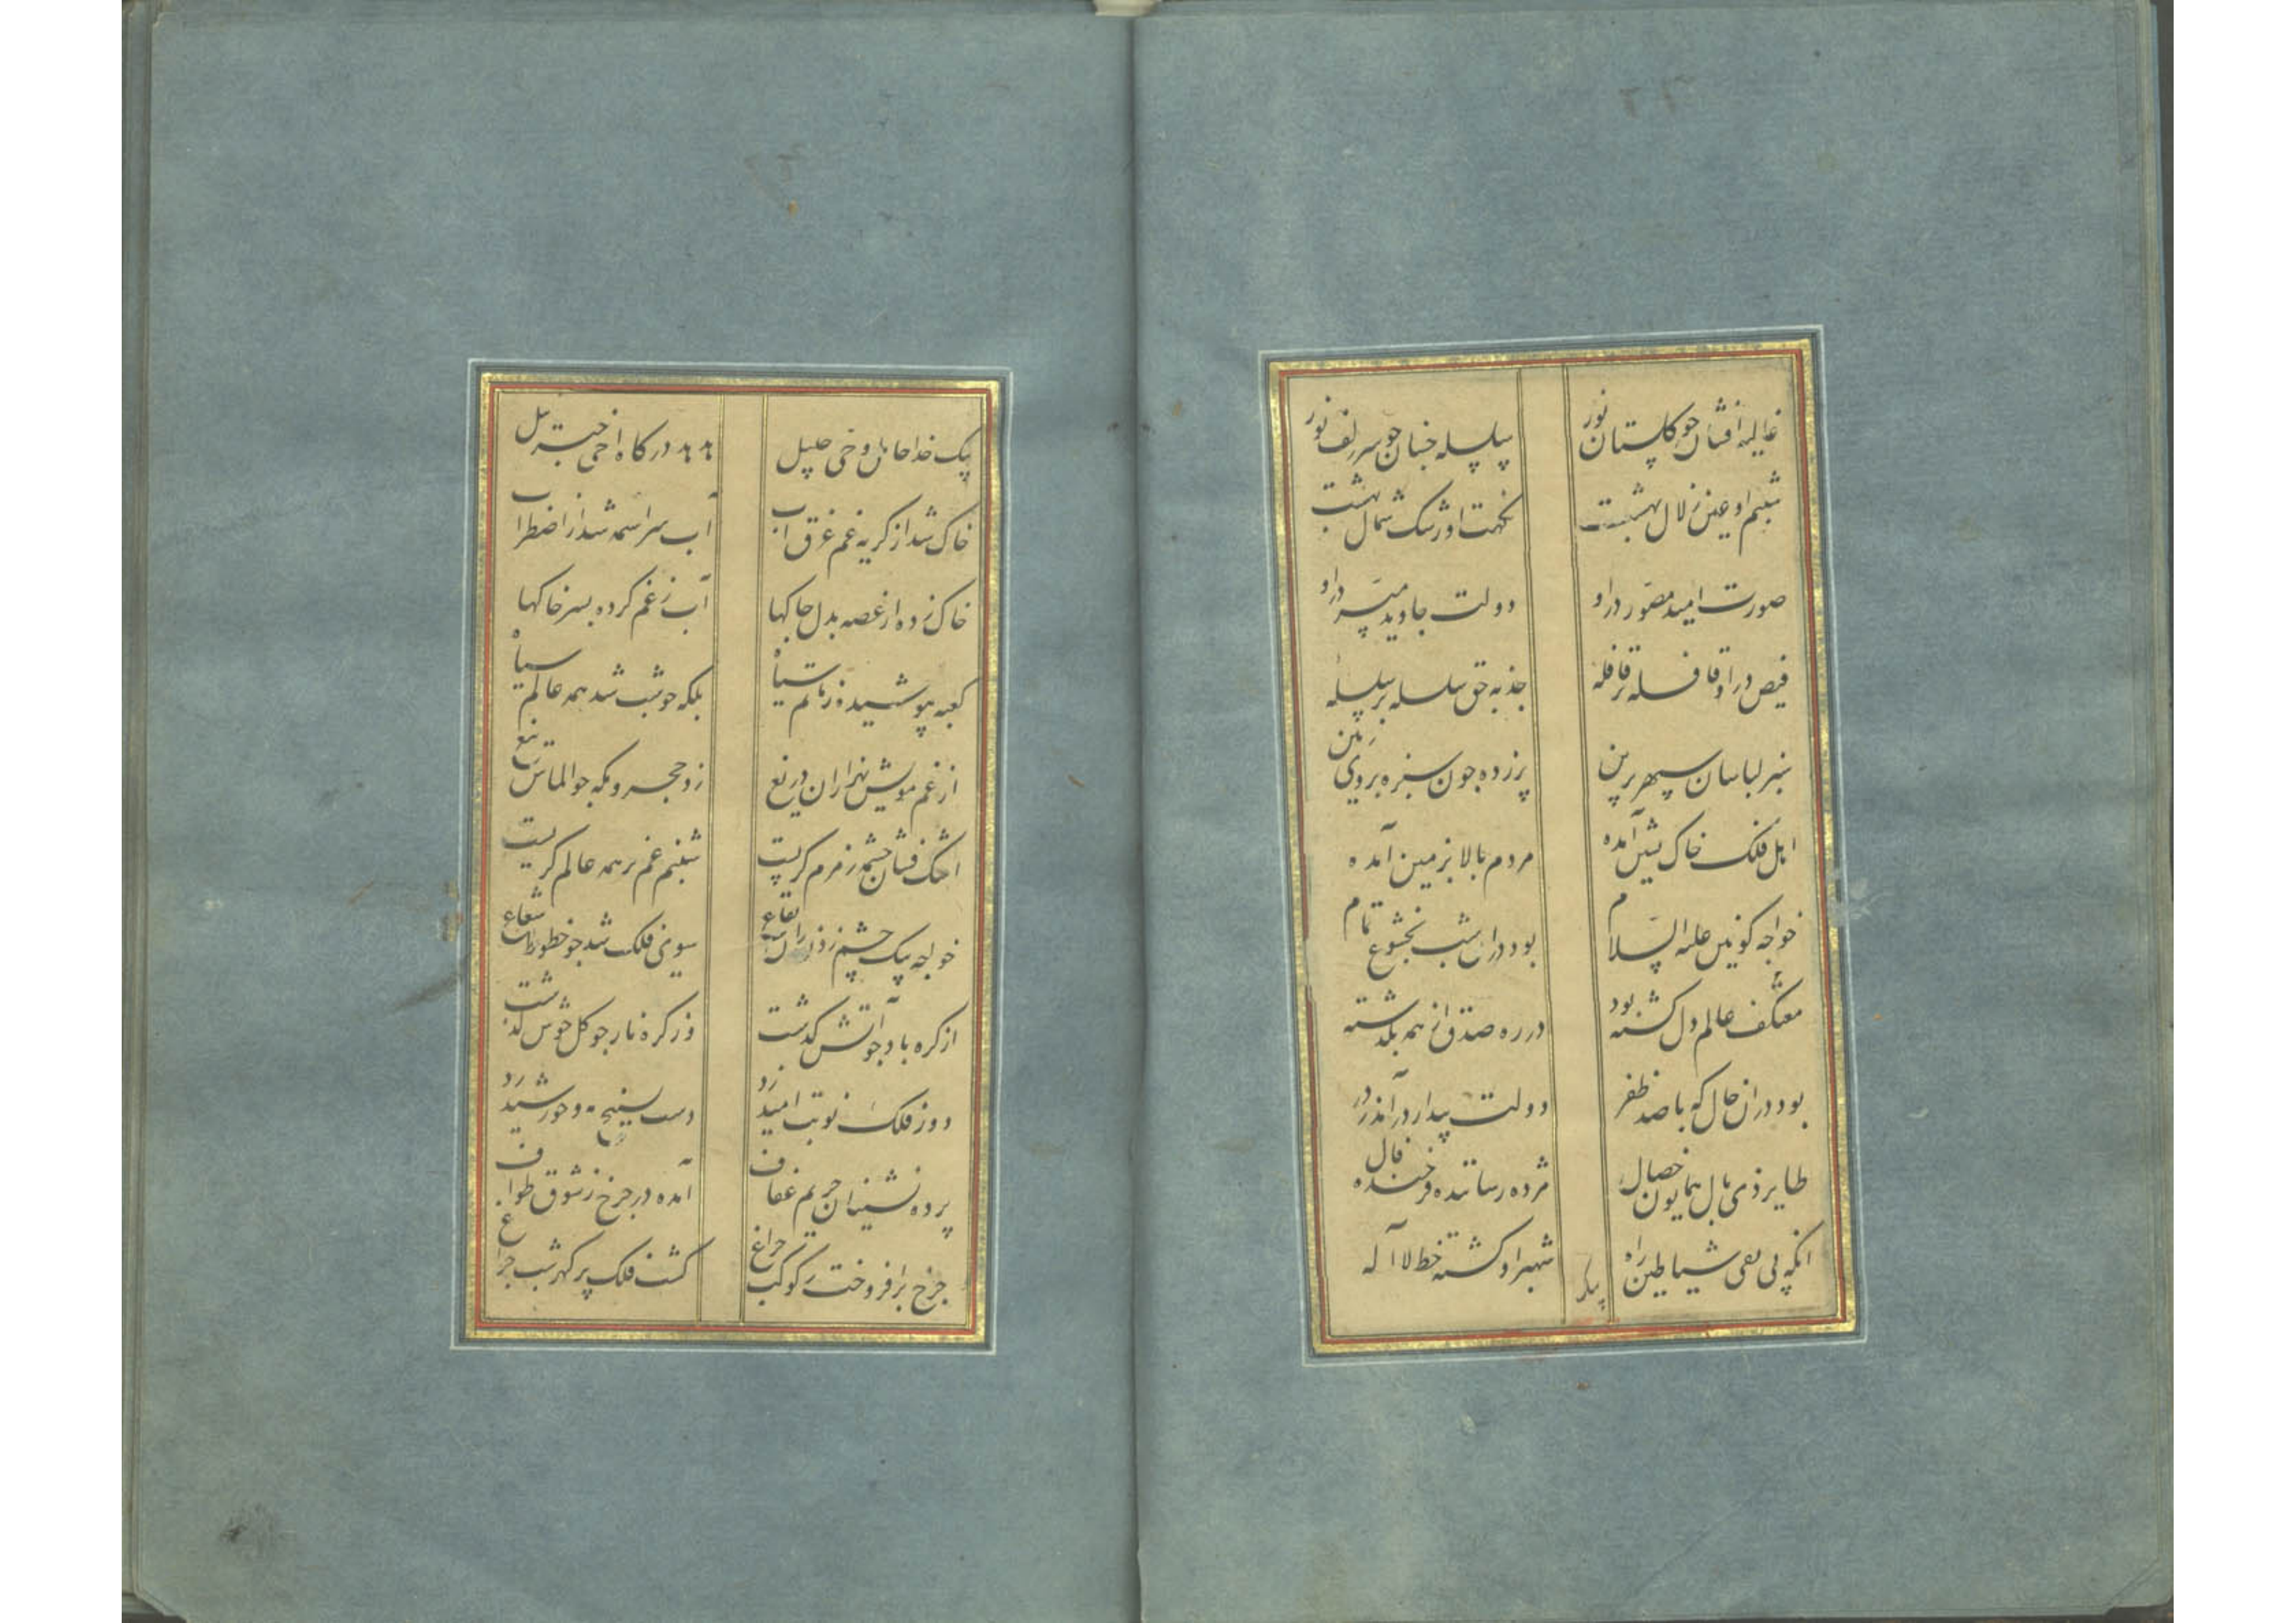 غالیه افشان چو گلستان نور سلسله جنبان چو سر زلف نور
شبنم او عین زلال بهشت نکهت او رشک شمال بهشت
صورت امید مصور در او دولت جاوید میسر در او
فیض در او قافله بر قافله جذبه حق سلسله بر سلسله
سبز لباسان سپهر برین پر زده چون سبزه بروی زمین
اهل فلک خاک نشین آمده مردم بالا بزمین آمده
خواجه کونین علیه السلام بود در آن شب بخشوع تمام
معتکف عالم دل گشته بود در ره صدق از همه بگذشته
بود در آن حال که با صد ظفر دولت بیدار در آمد ز در
طایر ذی بال همایون خصال مژده رساننده فرخنده فال
انکه پی نفی شیاطین راه شهپر او گشته خط لا اله
پیک
پیک خدا حامل وحی جلیل هدهد درگاه احد جبرئیل
خاک شد از گریه غم غرق آب آب سراسمه شد از اضطراب
خاک زده از غصه بدل چاکها آب ز غم کرده بسر خاکها
کعبه بپوشید ز ماتم سیاه بلکه چو شب شد همه عالم سیاه
از غم مویش هزاران دریغ زد حجر و مکه چو الماس تیغ
اشک فشان چشمه زمزم گریست شبنم غم بر همه عالم گریست
خواجه بیک چشم زدن زان بقاع سوی فلک شد چو خطوط شعاع
از کره باد چو آتش گذشت وز کره نار چو گل خوش گذشت
دور فلک نوبت امید زد دست بسنج مه و خورشید زد
پرده نشینان حریم عفاف آمده در چرخ ز شوق طواف
چرخ برافروخت ز کوکب چراغ گشت فلک پر گهر شب چراغ